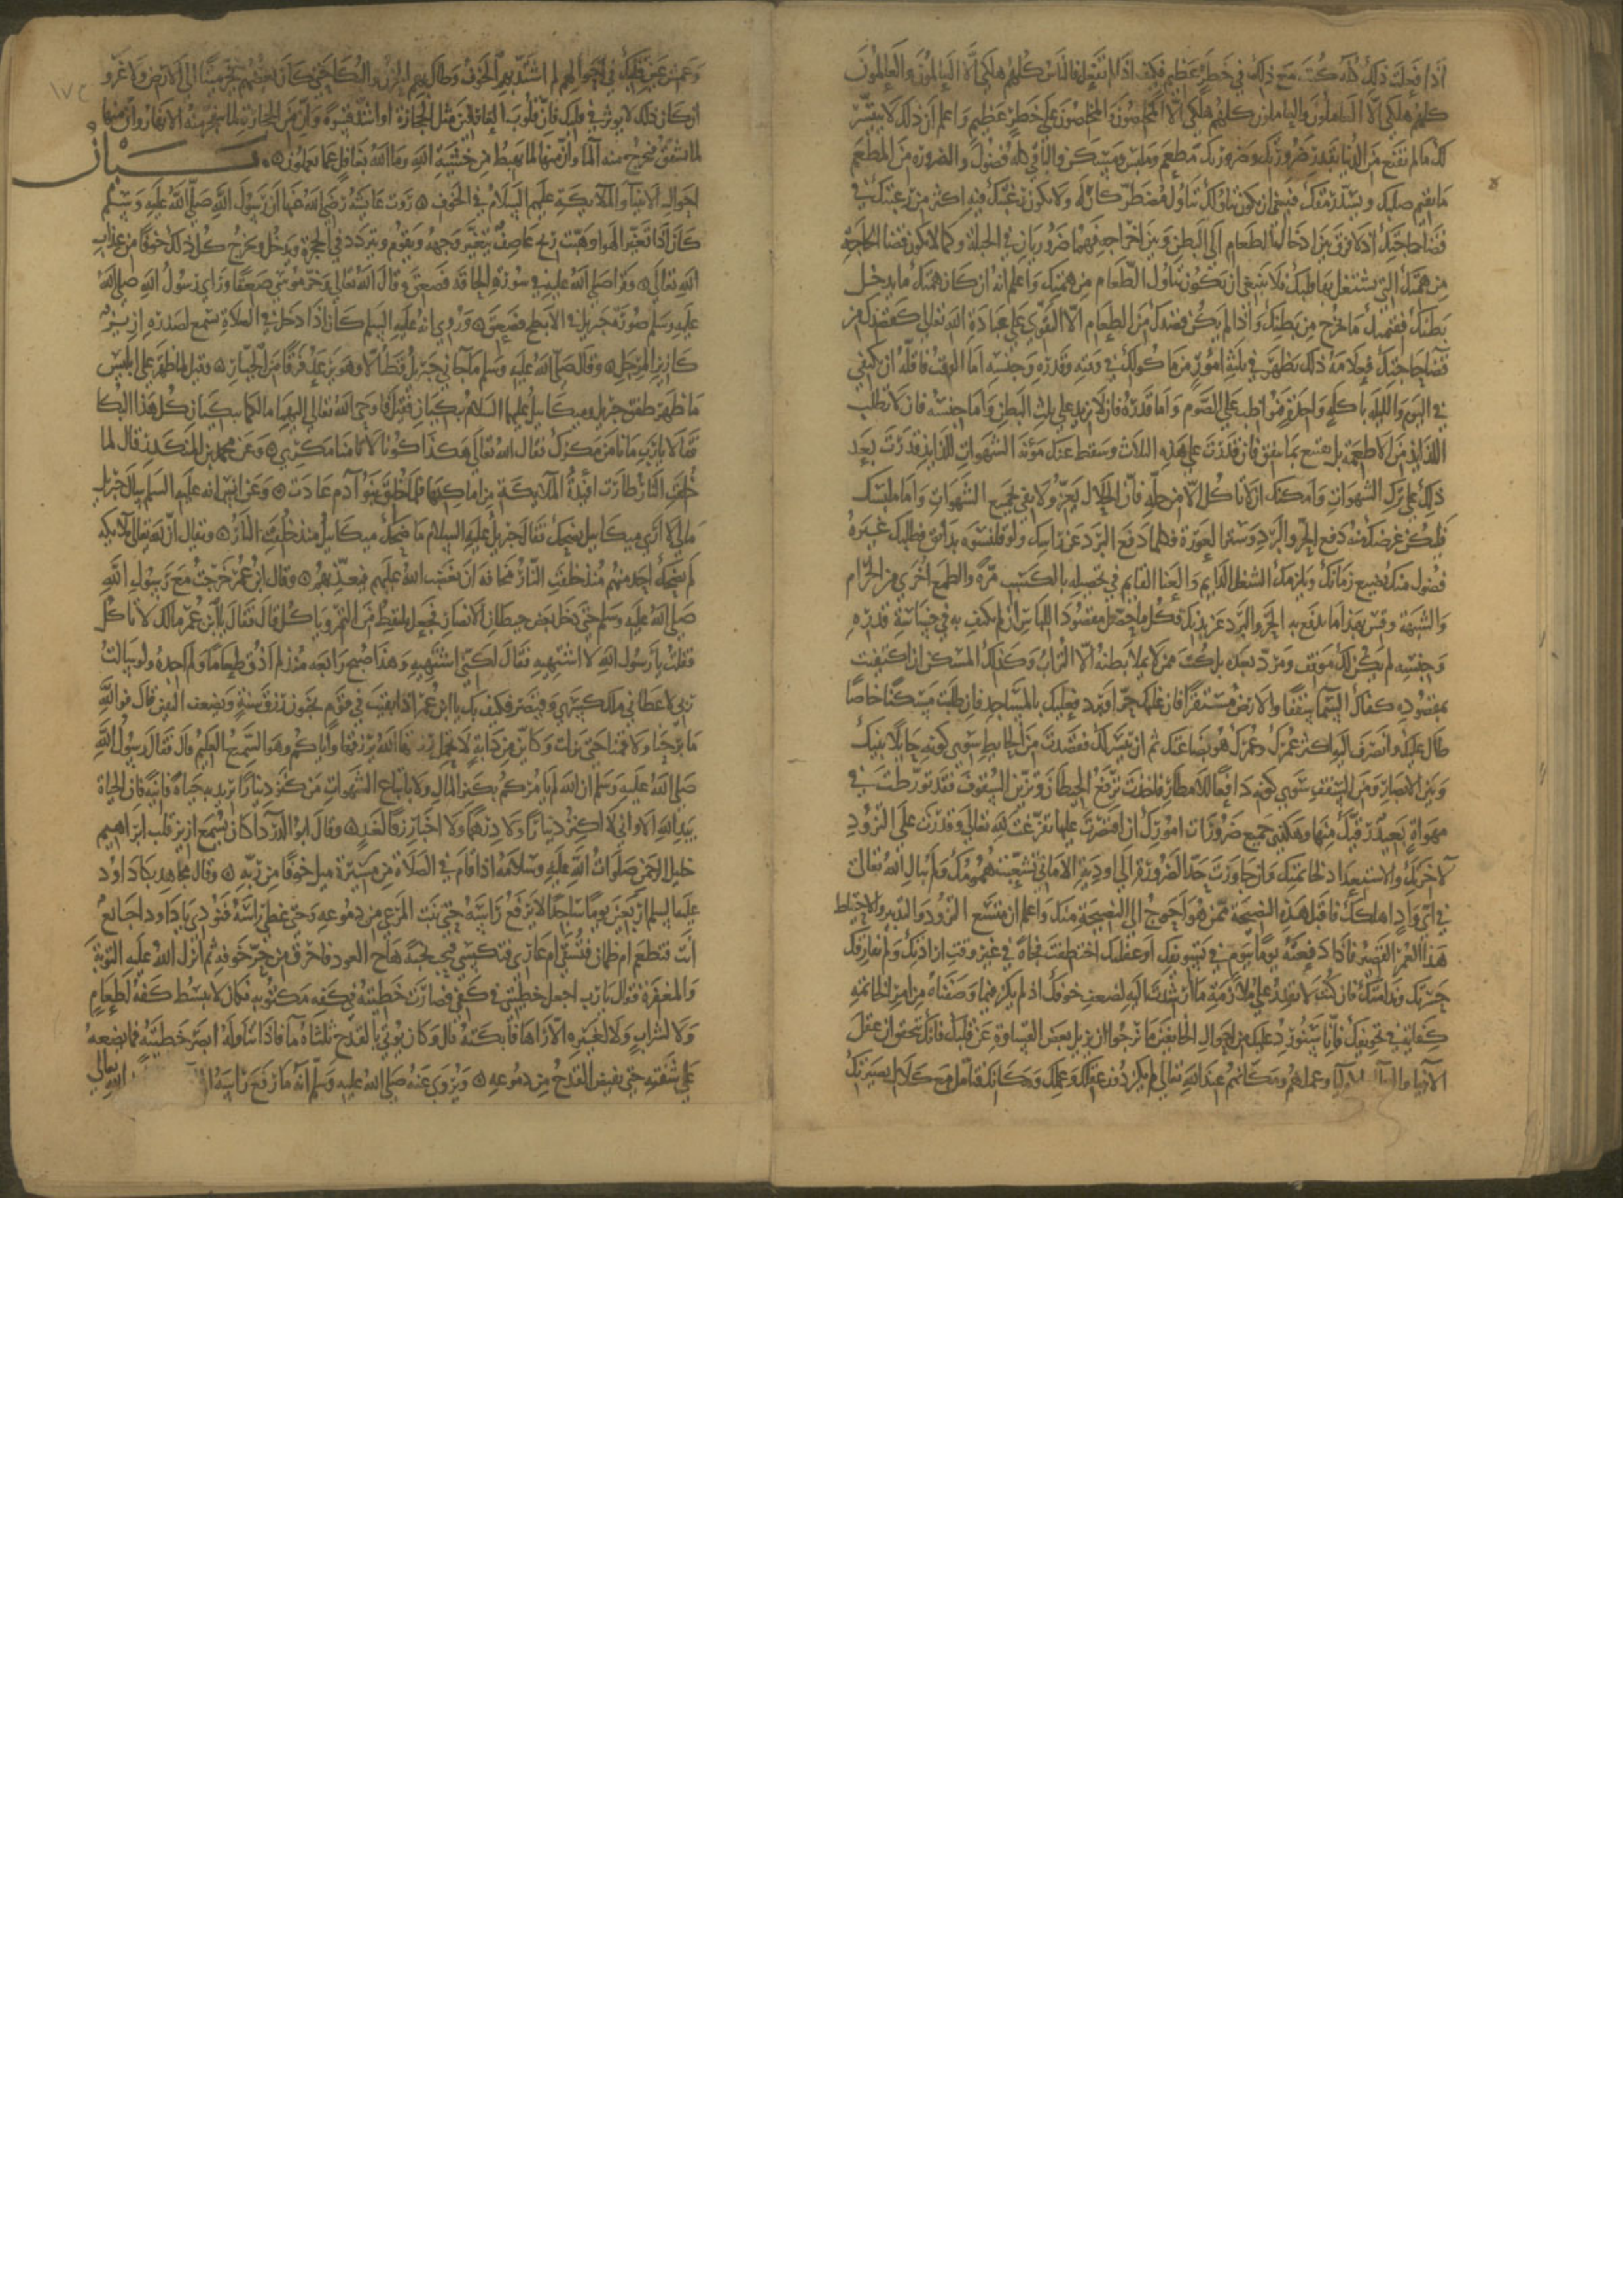 اذا فعلت ذلك كله كنت مع ذلك في خطر عظيم فكيف اذا لم تفعل فالناس كلهم هلكى الا العالمون والعالمون
كلهم هلكى الا العاملون والعاملون كلهم هلكى الا المخلصون والمخلصون على خطر عظيم واعلم ان ذلك لا يتيسر
لك ما لم تقنع من الدنيا بقدر ضرورتك وضرورتك مطعم وملبس ومسكن والباقي كله فضول والضرورة من المطعم
ما يقيم صلبك ويسد رمقك فينبغي ان يكون تناولك تناول مضطر كاره له ولا تكون رغبتك فيه اكثر من رغبتك في
قضا حاجتك اذ لا فرق بين ادخال الطعام الى البطن وبين اخراجه فهما ضروريان في الجبلة وكما لا يكون قضا الحاجة
من همتك التي يشتغل بها قلبك فلا ينبغي ان يكون تناول الطعام من همتك واعلم انه ان كان همتك ما يدخل
بطنك فقيمتك ما يخرج من بطنك واذا لم يكن قصدك من الطعام الا التقوي على عبادة الله تعالى كقصدك من
قضا حاجتك فعلامة ذلك تظهر في ثلثة امور من ماكولك في وقته وقدره وجنسه اما الوقت فاقله ان تكتفي
في اليوم والليلة باكلة واحدة فتواظب على الصوم واما قدره فان لا تزيد على ثلث البطن واما جنسه فان لا تطلب
اللذايذ من الاطعمة بل تقنع بما يتفق فان قدرت على هذه الثلاث وسقط عنك مؤنة الشهوات اللذايذ قدرت بعد
ذلك على ترك الشهوات وامكنك ان لا تاكل الا من حله فان الحلال يعز ولا يفي بجميع الشهوات واما ملبسك
فليكن غرضك منه دفع الحر والبرد وستر العورة فكلما دفع البرد عن راسك ولو قلنسوة بدانق فطلبك غيره
فضول منك يضيع زمانك ويلزمك الشغل الدايم والعنا القايم في تحصيله بالكسب مرة والطمع اخرى من الحرام
والشبهة وقس بهذا ما تدفع به الحر والبرد عن بدنك فكل ما حصل مقصود اللباس ان لم تكتف به في خساسة قدره
وجنسه لم يكن لك موقف ومرد بعده بل كنت ممن لا يملأ بطنه الا التراب وكذلك المسكن ان اكتفيت
بمقصوده كفاك السما سقفا والارض مستقرا فان غلبك حر او برد فعليك بالمساجد فان طلبت مسكنا خاصا
طال عليك وانصرف اليه اكثر عمرك وعمرك هو بضاعتك ثم ان تيسر لك فقصدت من الحايط سوى كونه حايلا بينك
وبين الابصار ومن السقف سوى كونه دافعا للامطار فاخذت ترفع الحيطان وتزين السقوف فقد تورطت في
مهواة يبعد رقيك منها وهكذى جميع ضرورات امورك ان اقتصرت عليها تفرغت لله تعالى وقدرت على التزود
لاخرتك والاستعداد لخاتمتك وان جاوزت حد الضرورة الى اودية الاماني تشعبت همومك ولم يبال الله تعالى
في اي واد اهلكك فاقبل هذه النصيحة ممن هو احوج الى النصيحة منك واعلم ان متسع التزود والتدبير والاحتياط
هذا العمر القصير فاذا دفعته يوما بيوم في تسويفك او غفلتك اختطفت فجاة في غير وقت ارادتك ولم تفارقك
حسرتك وندامتك فان كنت لا تقدر على ملازمة ما ارشدت اليه لضعف خوفك اذ لم يكن فيما وصفناه من امر الخاتمة
كفاية في تخويفك فانا سنورد عليك من احوال الخايفين ما نرجوا ان يزيل بعض القساوة عن قلبك فانك تتحقق ان عقل
الانبيا والاوليا والعلما وعملهم ومكانهم عند الله تعالى لم يكن دون عقلك وعملك ومكانك فتامل مع كلال بصيرتك
وعمش عين قلبك في احوالهم لم اشتد بهم الخوف وطال بهم الحزن والبكا حتى كان بعضهم يخر ميتا الى الارض ولا غرو
ان كان ذلك لا يوثر في قلبك فان قلوب الغافلين مثل الحجارة او اشد قسوة وان من الحجارة لما يتفجر منه الانهار وان منها
لما يشقق فيخرج منه الما وان منها لما يهبط من خشية الله وما الله بغافل عما تعملون ۞ بيان
احوال الانبيا والملايكة عليهم السلام في الخوف ۞ روت عايشة رضي الله عنها ان رسول الله صلى الله عليه وسلم
كان اذا تغير الهوا وهبت ريح عاصف يتغير وجهه ويقوم ويتردد في الحجرة ويدخل ويخرج كل ذلك خوفا من عذاب
الله تعالى ۞ وقرا صلى الله عليه في سورة الحاقة فصعق وقال الله تعالى وخر موسى صعقا وراى رسول الله صلى الله
عليه وسلم صورة جبريل في الابطح فصعق ۞ وروي انه عليه السلم كان اذا دخل في الصلاة سمع لصدره ازيز
كازيز المرجل ۞ وقال صلى الله عليه وسلم ما جاني جبريل قط الا وهو يرعد فرقا من الجبار ۞ وقيل لما ظهر على ابليس
ما ظهر طفق جبريل وميكاييل عليهما السلام يبكيان فاوحى الله تعالى اليهما ما لكما تبكيان كل هذا البكا
فقالا يا رب ما نامن مكرك فقال الله تعالى هكذا كونا لا تامنا مكري ۞ وعن محمد بن المنكدر قال لما
خلقت النار طارت افيدة الملايكة من اماكنها فلما خلق بنو آدم عادت ۞ وعن انس انه عليه السلم سال جبريل
ما لي لا ارى ميكاييل يضحك فقال جبريل عليه السلام ما ضحك ميكاييل منذ خلقت النار ۞ ويقال ان لله تعالى ملايكة
لم يضحك احد منهم منذ خلقت النار مخافة ان يغضب الله عليهم فيعذبهم ۞ وقال ابن عمر خرجت مع رسول الله
صلى الله عليه وسلم حتى دخل بعض حيطان الانصار فجعل يلتقط من التمر وياكل قال فقال يا ابن عمر مالك لا تاكل
فقلت يا رسول الله لا اشتهيه فقال لكني اشتهيه وهذا صبح رابعة منذ لم اذق طعاما ولم اجده ولو سالت
ربي لاعطاني ملك كسرى وقيصر فكيف بك يا ابن عمر اذا بقيت في قوم يخبون رزق سنة ويضعف اليقين قال فوالله
ما برحنا ولا قمنا حتى نزلت وكاين من دابة لا تحمل رزقها الله يرزقها واياكم وهو السميع العليم قال فقال رسول الله
صلى الله عليه وسلم ان الله لم يامركم بكنز المال ولا باتباع الشهوات من كنز دينارا يريد به حياة فانية فان الحياة
بيد الله الا واني لا اكنز دينارا ولا درهما ولا اخبا رزقا لغد ۞ وقال ابو الدردا كان يسمع ازيز قلب ابراهيم
خليل الرحمن صلوات الله عليه وسلامه اذا قام في الصلاة من مسيرة ميل خوفا من ربه ۞ وقال مجاهد بكا داود
عليه السلم اربعين يوما ساجدا لا يرفع راسه حتى نبت المرعى من دموعه وحتى غطى راسه فنودي يا داود اجايع
انت فتطعم ام ظمان فتسقى ام عار فتكسى فنحب نحبة هاج العود فاحترق من حر خوفه ثم انزل الله عليه التوبة
والمغفرة فقال يا رب اجعل خطيتي في كفي فصارت خطيته في كفه مكتوبة فكان لا يبسط كفه لطعام
ولا لشراب ولا لغيره الا راها فابكته قال وكان يوتى بالقدح ثلثاه ما فاذا تناوله ابصر خطيته فما يضعه
على شفته حتى يفيض القدح من دموعه ۞ ويروى عنه صلى الله عليه وسلم انه ما رفع راسه